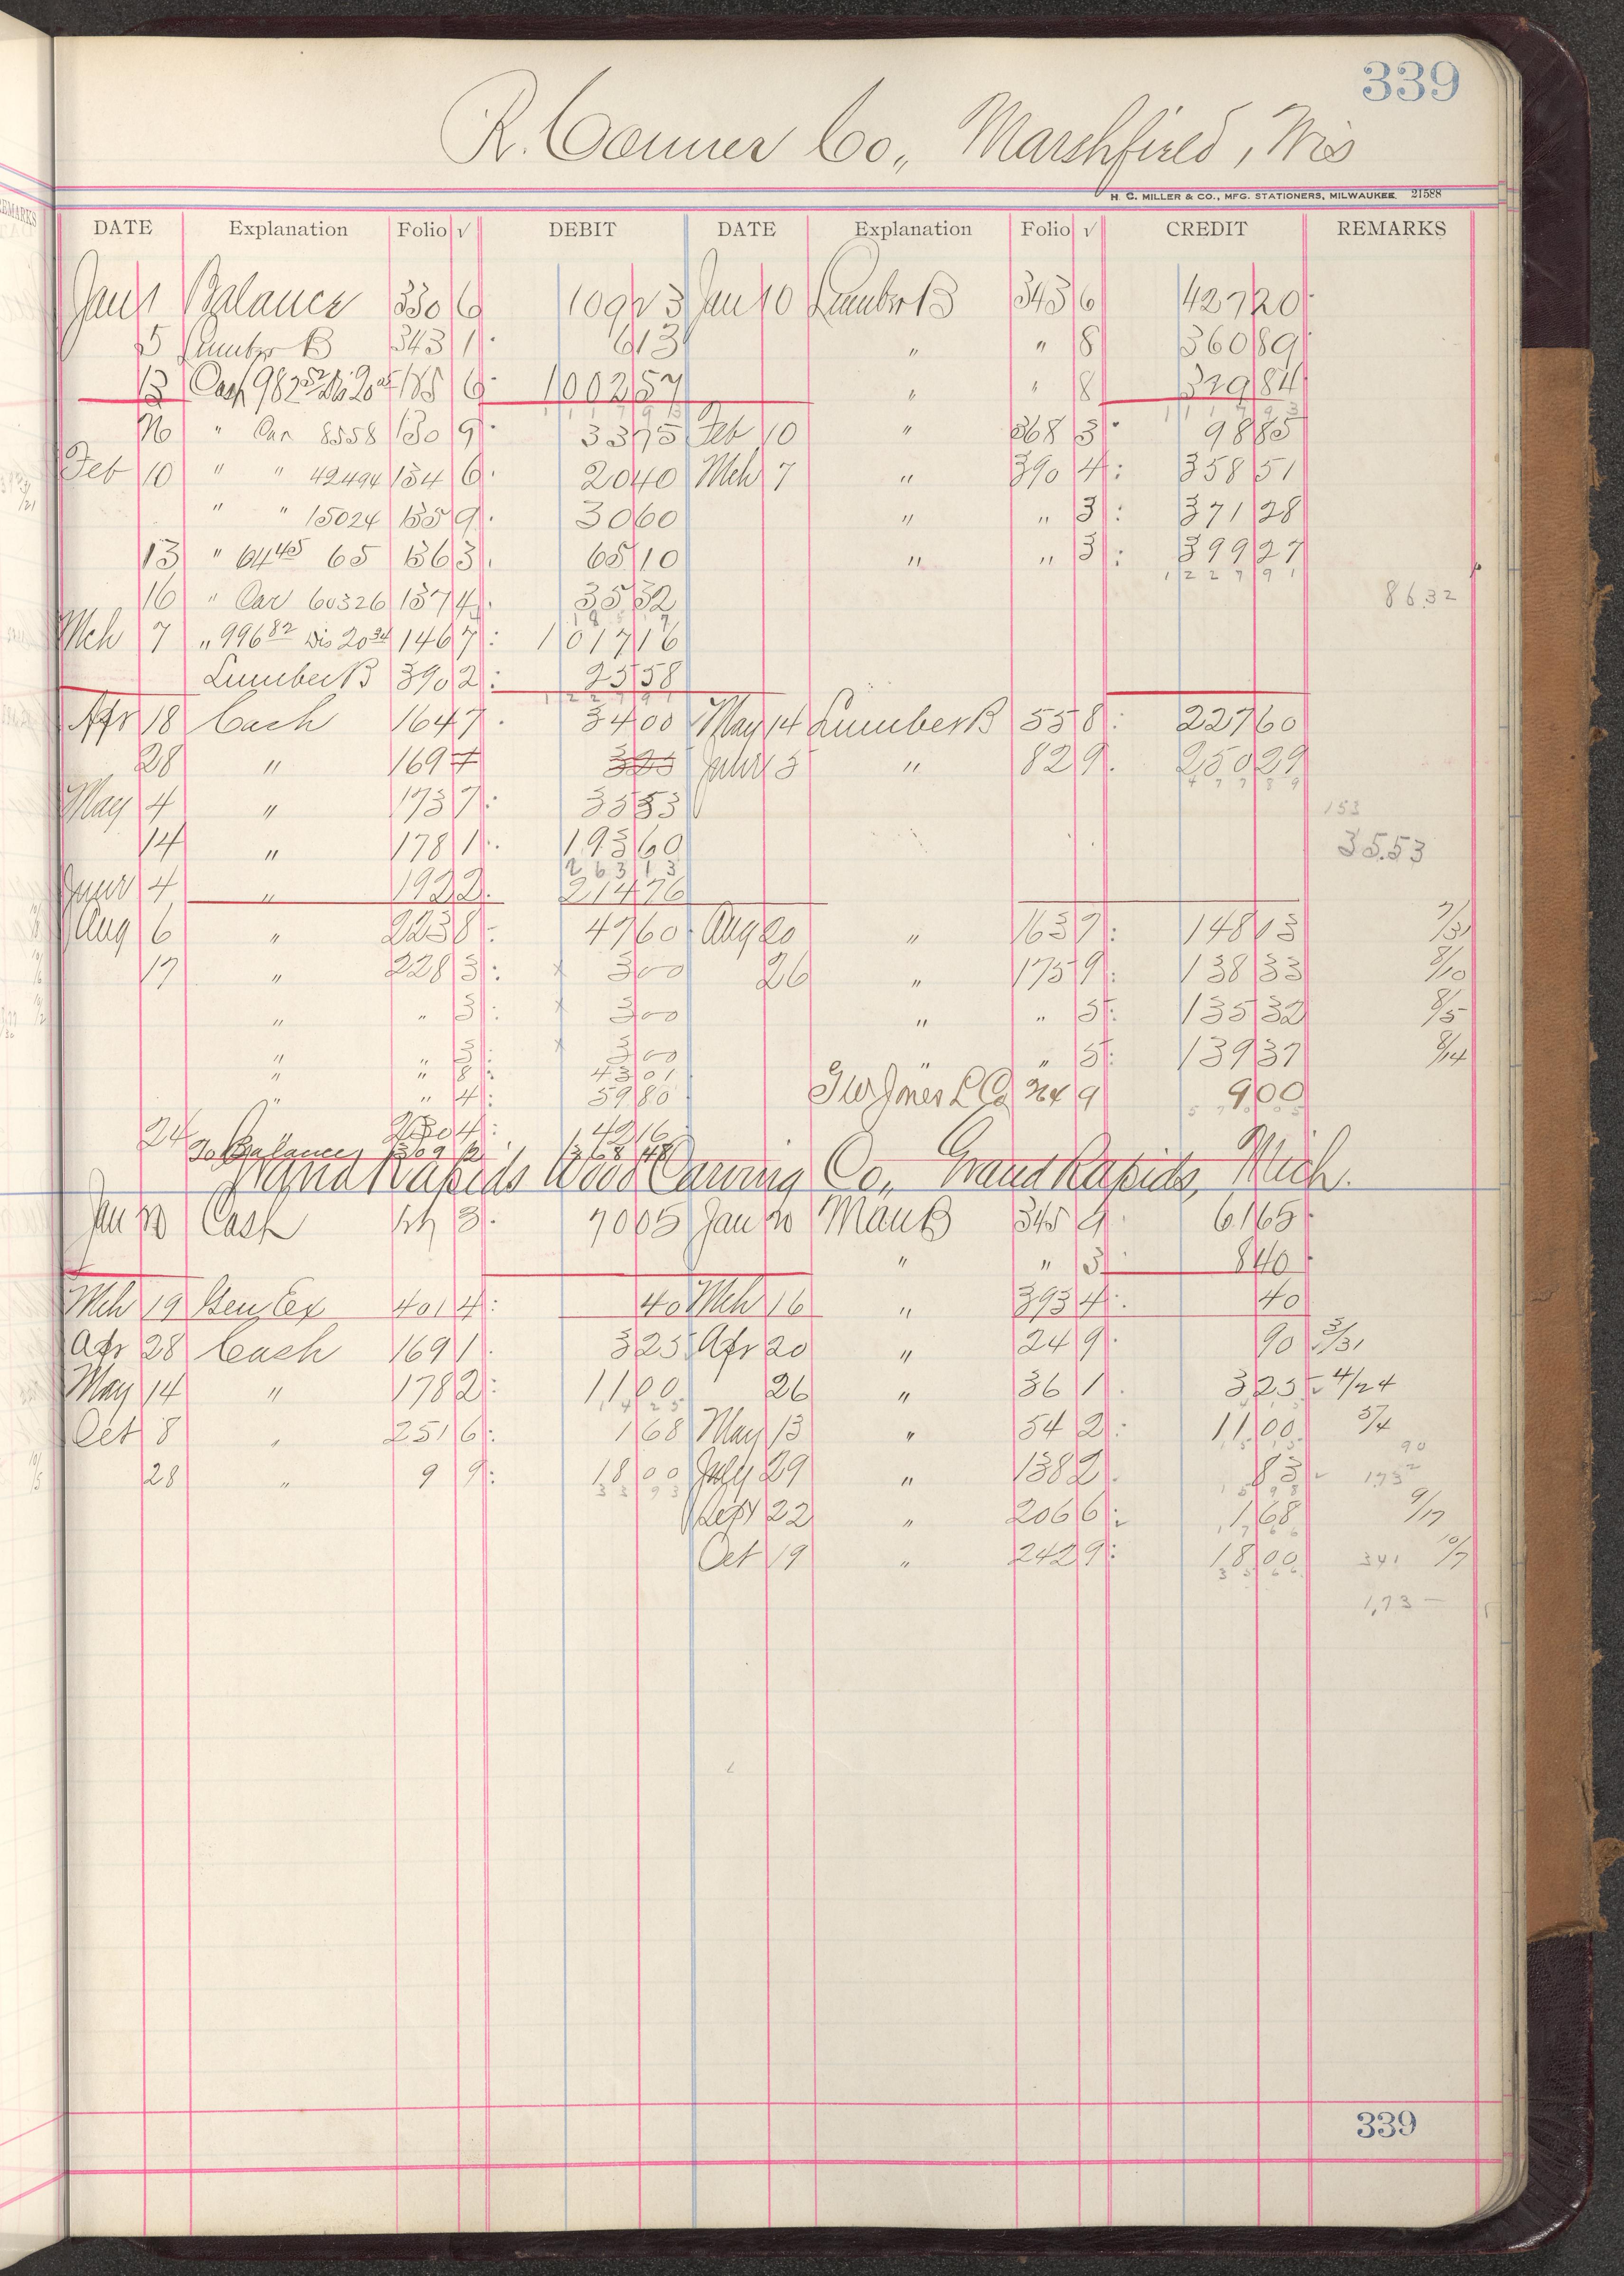 339
R. Connor Co., Marshfield, Wis
H. C. MILLER & CO., MFG. STATIONERS, MILWAUKEE 21588
DATE Explanation Folio √ DEBIT DATE Explanation Folio √ CREDIT REMARKS
Jan 1 Balance 330 6 109 23 Jan 10 Lumber B 343 6 427 20
5 Lumber B 343 1 6 13 " " 8 360 89
13 Cash 982 52 Dis 20 05 1002 57 " " 8 329 84
" Car 8558 130 9 33 75 Feb 10 " 368 3 98 85
Feb 10 " " 42494 134 6 20 40 Mch 7 " 390 4 358 51
" " 15024 135 9 30 60 " " 3 371 28
13 " 64 45 65 136 3 65 10 " " 3 399 27
16 " Car 60326 137 4 35 32 86.32
Mch 7 " 996 82 Dis 20 34 146 7 1017 16
Lumber B 390 2 25 58
Apr 18 Cash 164 7 34 00 May 14 Lumber B 55 8 227 60
28 " 169 7 3 25 June 5 " 82 9 250 29
May 4 " 173 7 35 53 153
14 " 178 1 193 60 35.53
June 4 " 192 2 214 76
Aug 6 " 223 8 47 60 Aug 20 " 163 7 148 13 7/31
17 " 228 3 3 00 26 " 175 9 138 33 8/10
" " 3 3 00 " " 5 135 32 8/5
" " 3 3 00 " " 5 139 37 8/14
" " 8 43 01
" " 4 59 80 9 00
24 42 16
To Balance 368 48
Grand Rapids Wood Carving Co., Grand Rapids, Mich.
Jan Cash 3 70 05 Jan Man B 345 9 61 65
" " 3 8 40
Mch 19 Gen Ex 401 4 40 Mch 16 " 393 4 40
Apr 28 Cash 169 1 3 25 Apr 20 " 24 9 90 3/31
May 14 " 178 2 11 00 26 " 36 1 3 25 4/24
Oct 8 " 251 6 1 68 May 13 " 54 2 11 00 5/4
90
28 " 9 9 18 00 July 29 " 138 2 83
Sept 22 " 206 6 1 68 9/17
Oct 19 " 242 9 18 00 341 10/7
1,73 —
339